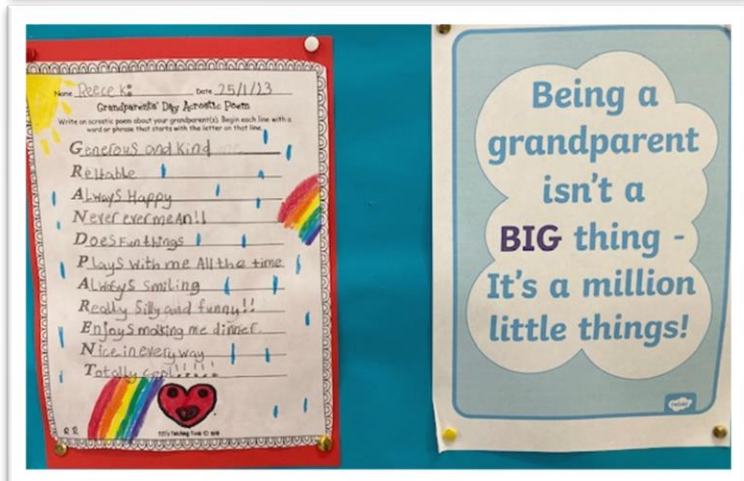 Name Reece K Date 25/1/23
Grandparents' Day Acrostic Poem
Write an acrostic poem about your grandparent(s). Begin each line with a
word or phrase that starts with the letter on that line.
Generous and kind
Reliable
Always Happy
Never ever meAn!!
Does Fun things
Plays with me All the time
Always smiling
Really silly and funny!!
Enjoys making me dinner
Nice in every way
Totally cool!!!!!
Being a
grandparent
isn't a
BIG thing -
It's a million
little things!
twinkl